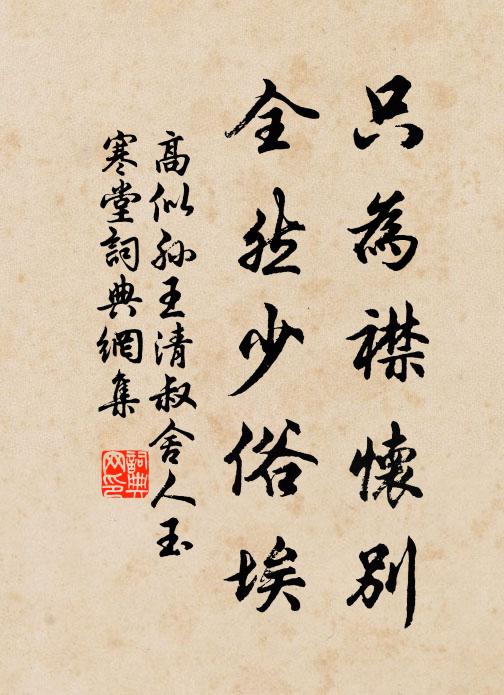 只為襟懷別
全然少俗埃
高似孫王清叔舍人玉
寒堂詞典網集
詞典網印